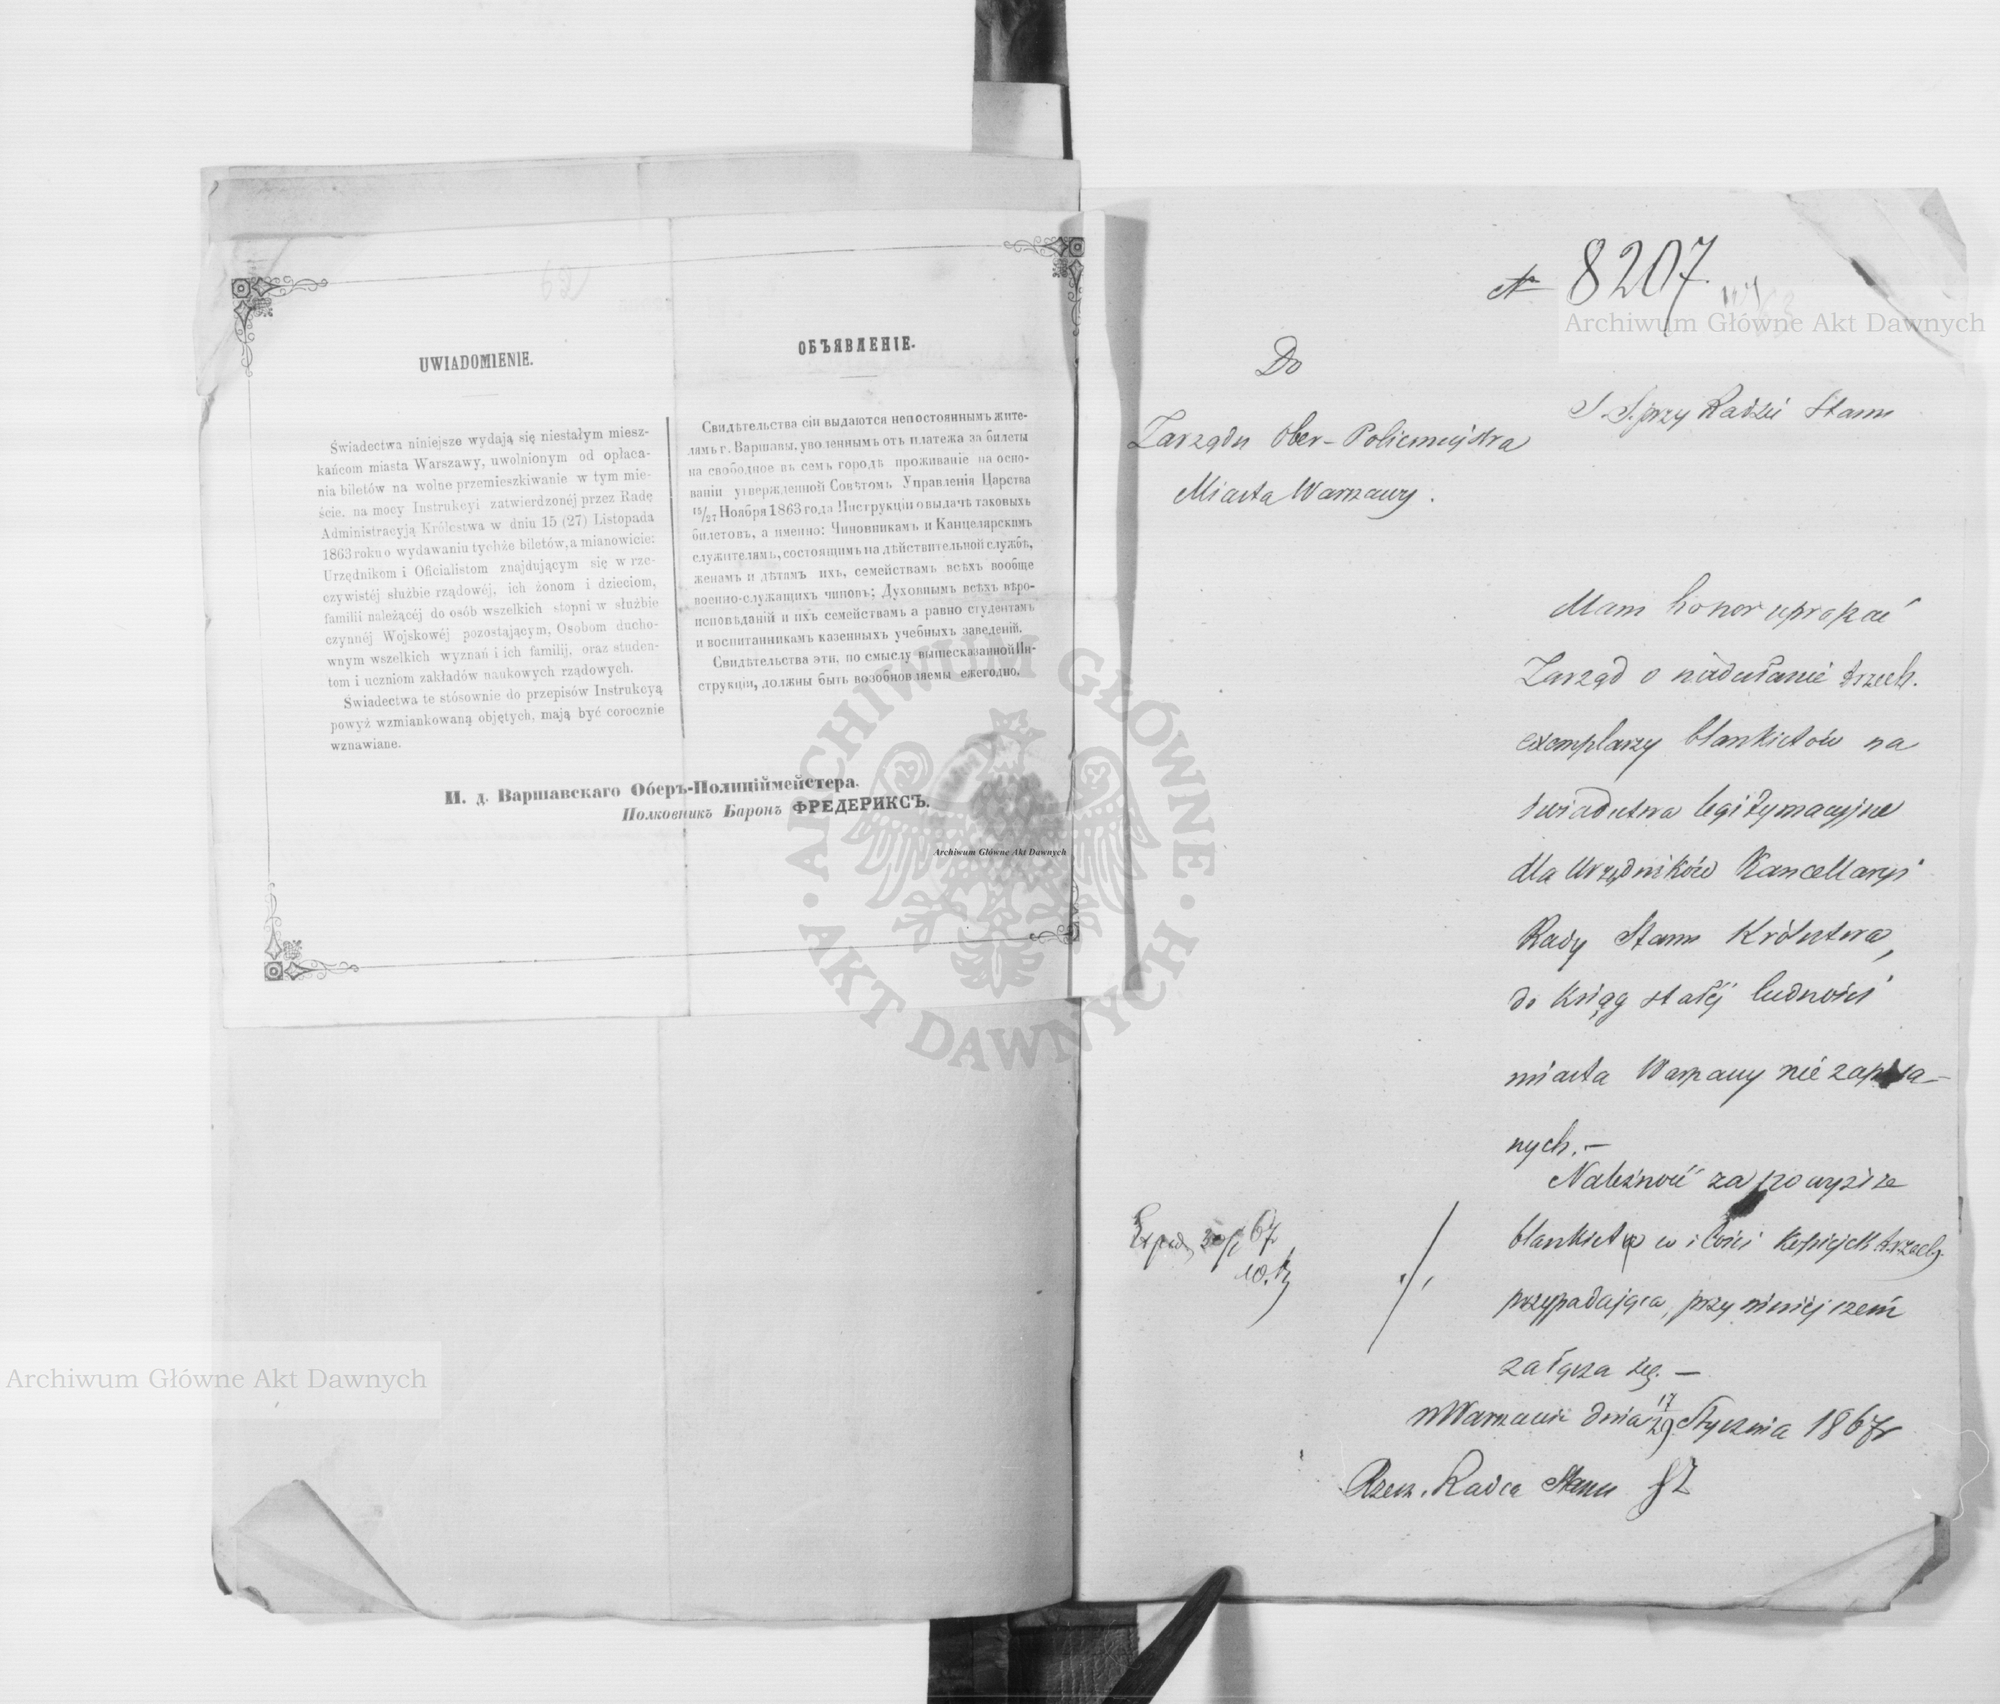 UWIADOMIENIE.
Świadectwa niniejsze wydają się niestałym miesz-
kańcom miasta Warszawy, uwolnionym od opłaca-
nia biletów na wolne przemieszkiwanie w tym mie-
ście, na mocy Instrukcyi zatwierdzonéj przez Radę
Administracyją Królestwa w dniu 15 (27) Listopada
1863 roku o wydawaniu tychże biletów, a mianowicie:
Urzędnikom i Oficialistom znajdującym się w rze-
czywistéj służbie rządowéj, ich żonom i dzieciom,
familii należącéj do osób wszelkich stopni w służbie
czynnéj Wojskowéj pozostającym, Osobom ducho-
wnym wszelkich wyznań i ich familij, oraz studen-
tom i uczniom zakładów naukowych rządowych.
Świadectwa te stósownie do przepisów Instrukcyą
powyż wzmiankowaną objętych, mają być corocznie
wznawiane.
ОБЪЯВЛЕНІЕ.
Свидѣтельства сіи выдаются непостояннымъ жите-
лямъ г. Варшавы, уволеннымъ отъ платежа за билеты
на свободное въ семъ городѣ проживаніе на осно-
ваніи утвержденной Совѣтомъ Управленія Царства
15/27 Ноября 1863 года Инструкціи о выдачѣ таковыхъ
билетовъ, а именно: Чиновникамъ и Канцелярскимъ
служителямъ, состоящимъ на дѣйствительной службѣ,
женамъ и дѣтямъ ихъ, семействамъ всѣхъ вообще
военно-служащихъ чиновъ; Духовнымъ всѣхъ вѣро-
исповѣданій и ихъ семействамъ а равно студентамъ
и воспитанникамъ казенныхъ учебныхъ заведеній.
Свидѣтельства эти, по смыслу вышесказанной Ин-
струкціи, должны быть возобновляемы ежегодно.
И. д. Варшавскаго Оберъ-Полиціймейстера,
Полковникъ Баронъ ФРЕДЕРИКСЪ.
Archiwum Główne Akt Dawnych
№ 8207.
Archiwum Główne Akt Dawnych
S. S. przy Radzie Stanu
Do
Zarządu Ober-Policmajstra
Miasta Warszawy.
Mam honor uprosić
Zarząd o nadesłanie trzech
exemplarzy blankietów na
świadectwa legitymacyjne
dla Urzędników Kancellaryi
Rady Stanu Królestwa,
do ksiąg stałéj ludności
miasta Warszawy nie zapisa-
nych. -
Należność za powyższe
blankiety w ilości kopiejek trzech
przypadająca, przy niniejszem
załącza się. -
w Warszawie dnia 17/29 Stycznia 1867 r
Rzecz. Radca Stanu
ARCHIWUM GŁÓWNE AKT DAWNYCH
Archiwum Główne Akt Dawnych